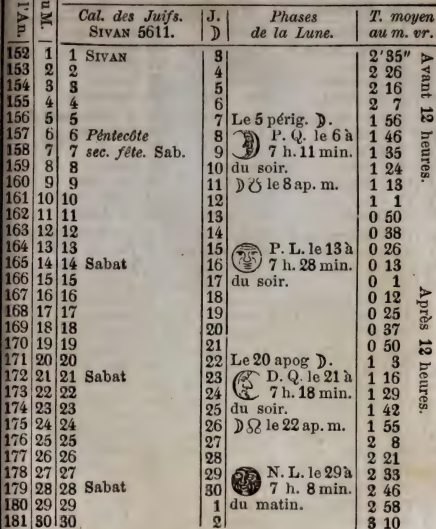 l'An. u M. Cal. des Juifs. SIVAN 5611. J. ☽ Phases de la Lune. T. moyen au m. vr.
152 1 1 SIVAN 3 2'35"
153 2 2 4 2 26
154 3 3 5 2 16
155 4 4 6 2 7
156 5 5 7 Le 5 périg. ☽. 1 56
157 6 6 Péntecôte 8 P. Q. le 6 à 1 46
158 7 7 sec. fête. Sab. 9 7 h. 11 min. 1 35
159 8 8 10 du soir. 1 24
160 9 9 11 ☽☋ le 8 ap. m. 1 13
161 10 10 12 1 1
162 11 11 13 0 50
163 12 12 14 0 38
164 13 13 15 P. L. le 13 à 0 26
165 14 14 Sabat 16 7 h. 28 min. 0 13
166 15 15 17 du soir. 0 1
167 16 16 18 0 12
168 17 17 19 0 25
169 18 18 20 0 37
170 19 19 21 0 50
171 20 20 22 Le 20 apog ☽. 1 3
172 21 21 Sabat 23 D. Q. le 21 à 1 16
173 22 22 24 7 h. 18 min. 1 29
174 23 23 25 du soir. 1 42
175 24 24 26 ☽☊ le 22 ap. m. 1 55
176 25 25 27 2 8
177 26 26 28 2 21
178 27 27 29 N. L. le 29 à 2 33
179 28 28 Sabat 30 7 h. 8 min. 2 46
180 29 29 1 du matin. 2 58
181 30 30 2 3 10
Avant 12 heures.
Après 12 heures.